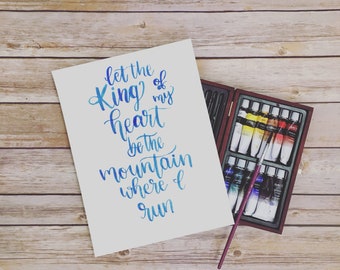 let the
King of
my
heart
be the
mountain
where I
run